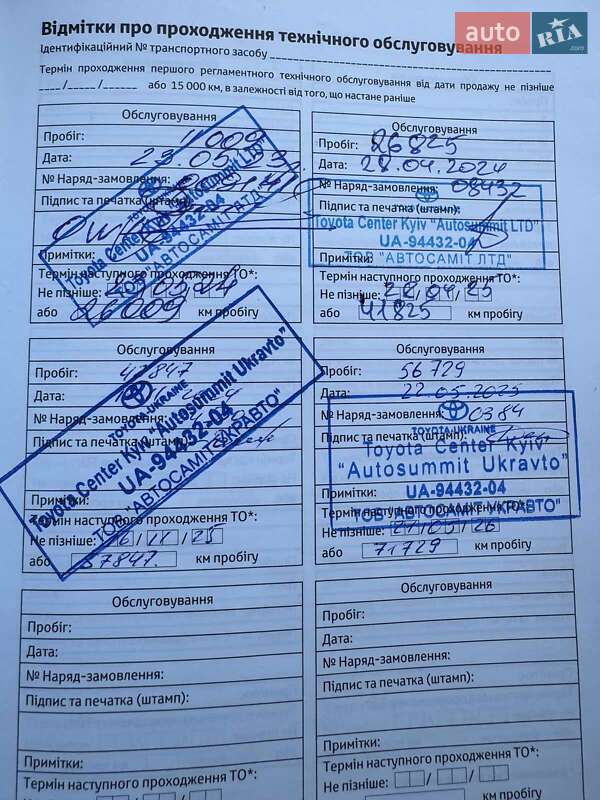 auto RIA .com
Відмітки про проходження технічного обслуговування
Ідентифікаційний № транспортного засобу
Термін проходження першого регламентного технічного обслуговування від дати продажу не пізніше
__/__/__ або 15 000 км, в залежності від того, що настане раніше
Обслуговування
Пробіг: 11009
Дата: 23.05.23
№ Наряд-замовлення:
Підпис та печатка (штамп):
TOYOTA-UKRAINE
Toyota Center Kyiv "Autosummit LTD"
UA-94432-04
ТОВ "АВТОСАМІТ ЛТД"
Примітки:
Термін наступного проходження ТО*:
Не пізніше: 23/05/24
або 26009 км пробігу
Обслуговування
Пробіг: 26825
Дата: 28.04.2024
№ Наряд-замовлення: 08432
Підпис та печатка (штамп):
Toyota Center Kyiv "Autosummit LTD"
UA-94432-04
ТОВ "АВТОСАМІТ ЛТД"
Примітки:
Термін наступного проходження ТО*:
Не пізніше: 28/04/25
або 41825 км пробігу
Обслуговування
Пробіг: 42847
Дата:
№ Наряд-замовлення:
Підпис та печатка (штамп):
TOYOTA-UKRAINE
Toyota Center Kyiv "Autosummit Ukravto"
UA-94432-04
ТОВ "АВТОСАМІТ УКРАВТО"
Примітки:
Термін наступного проходження ТО*:
Не пізніше: 16/11/25
або 57847 км пробігу
Обслуговування
Пробіг: 56729
Дата: 22.05.2025
№ Наряд-замовлення: 0384
Підпис та печатка (штамп):
TOYOTA UKRAINE
Toyota Center Kyiv
"Autosummit Ukravto"
Примітки: UA-94432-04
ТОВ "АВТОСАМІТ УКРАВТО"
Термін наступного проходження ТО*:
Не пізніше: 21/05/26
або 71729 км пробігу
Обслуговування
Пробіг:
Дата:
№ Наряд-замовлення:
Підпис та печатка (штамп):
Примітки:
Термін наступного проходження ТО*:
Не пізніше:
Обслуговування
Пробіг:
Дата:
№ Наряд-замовлення:
Підпис та печатка (штамп):
Примітки:
Термін наступного проходження ТО*:
Не пізніше: